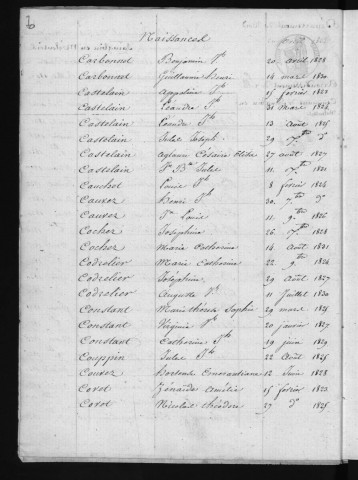 Naissances
Carbonnel Benjamin Jh 20 avril 1828
Carbonnel Guillaume Henri 14 mars 1830
Castelain Augustin Jh 15 février 1823
Castelain Léandre Jh 31 mars 1824
Castelain Léandre Jh 13 août 1825
Castelain Jules Joseph 29 7bre do
Castelain Aglaure Césaire 27 août 1827
Castelain Jn Bte Jules 11 7bre 1831
Cauchet Louis Jh 8 février 1824
Cauvez Henri Jh 30 7bre do
Cauvez Jn Louis 11 9bre 1826
Cocher Joséphine 26 7bre 1828
Cocher Marie Catherine 14 août 1831
Codrelier Marie Catherine 22 9bre 1824
Codrelier Joséphine 29 avril 1827
Codrelier Auguste Jh 11 Juillet 1830
Constant Marie thérèse Sophie 29 mars 1824
Constant Virginie Jh 20 février 1827
Constant Catherine Jh 19 juin 1829
Couppin Jules Jh 22 août 1825
Couvez Hortense Constantine 12 Juin 1828
Corol Zénaïde Amélie 15 février 1823
Corol Nicolas théodore 27 do 1825